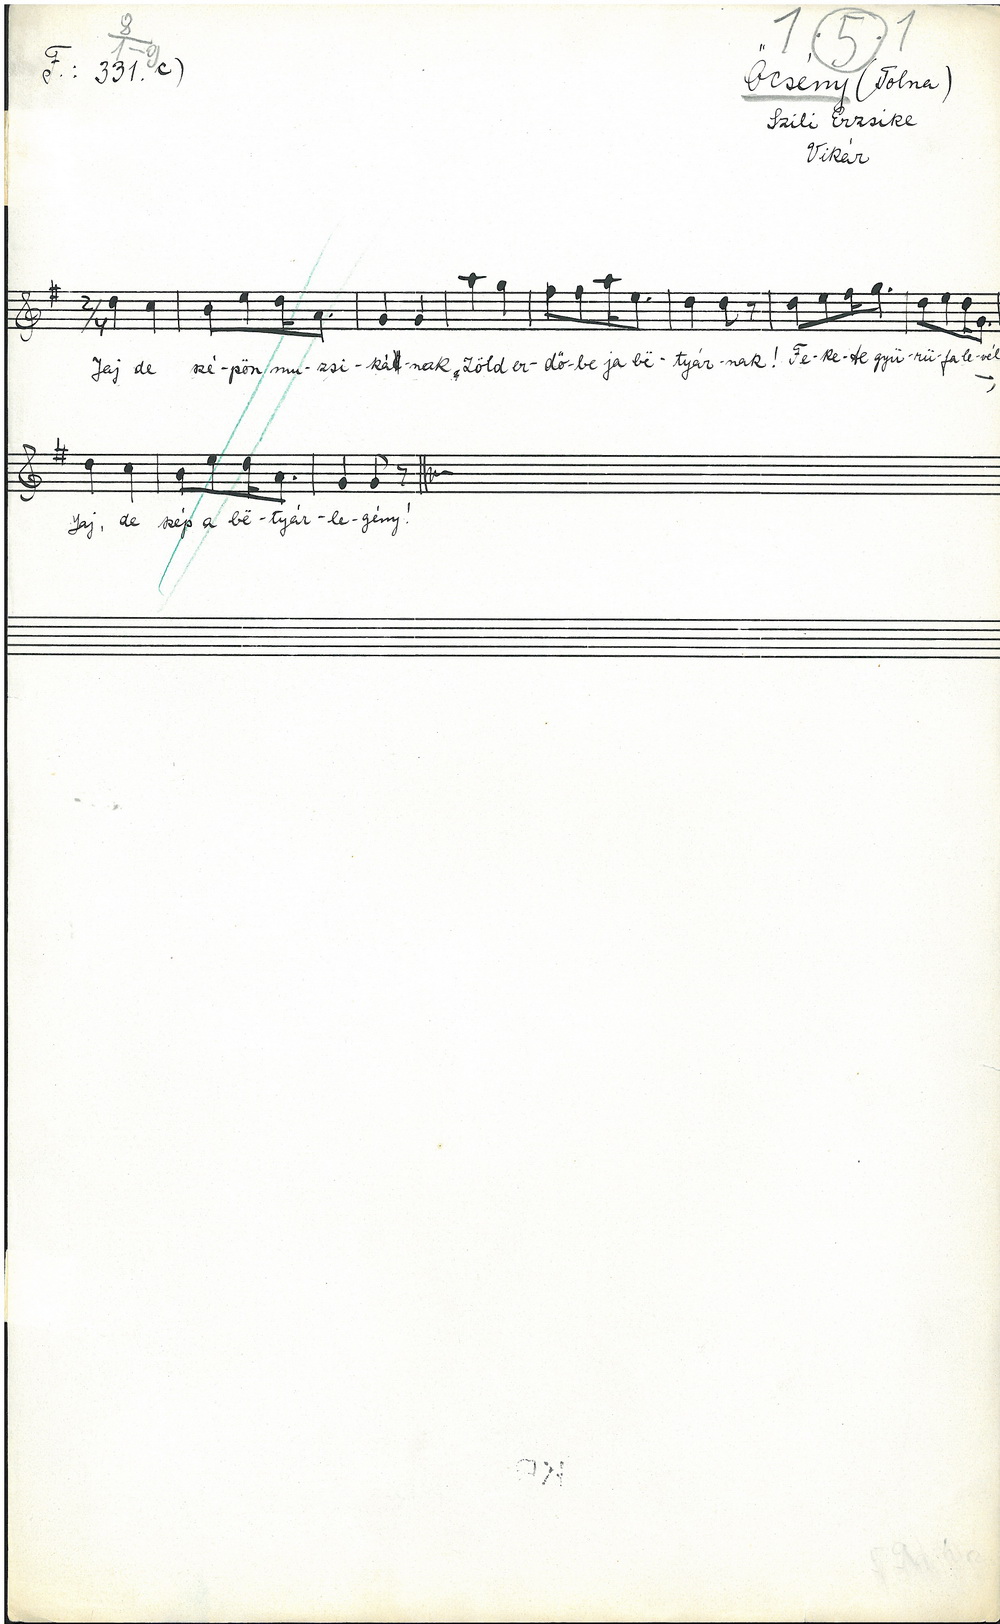 8
1-9
F.: 331. c)
1·5·1
Őcsény (Tolna)
Szili Erzsike
Vikár
2/4
Jaj de szé-pön mu-zsi-kál-nak, Zöld er-dő-be ja bë-tyár-nak! Fe-ke-te gyü-rü-fa le-vél
Jaj, de szép a bë-tyár-le-gény!